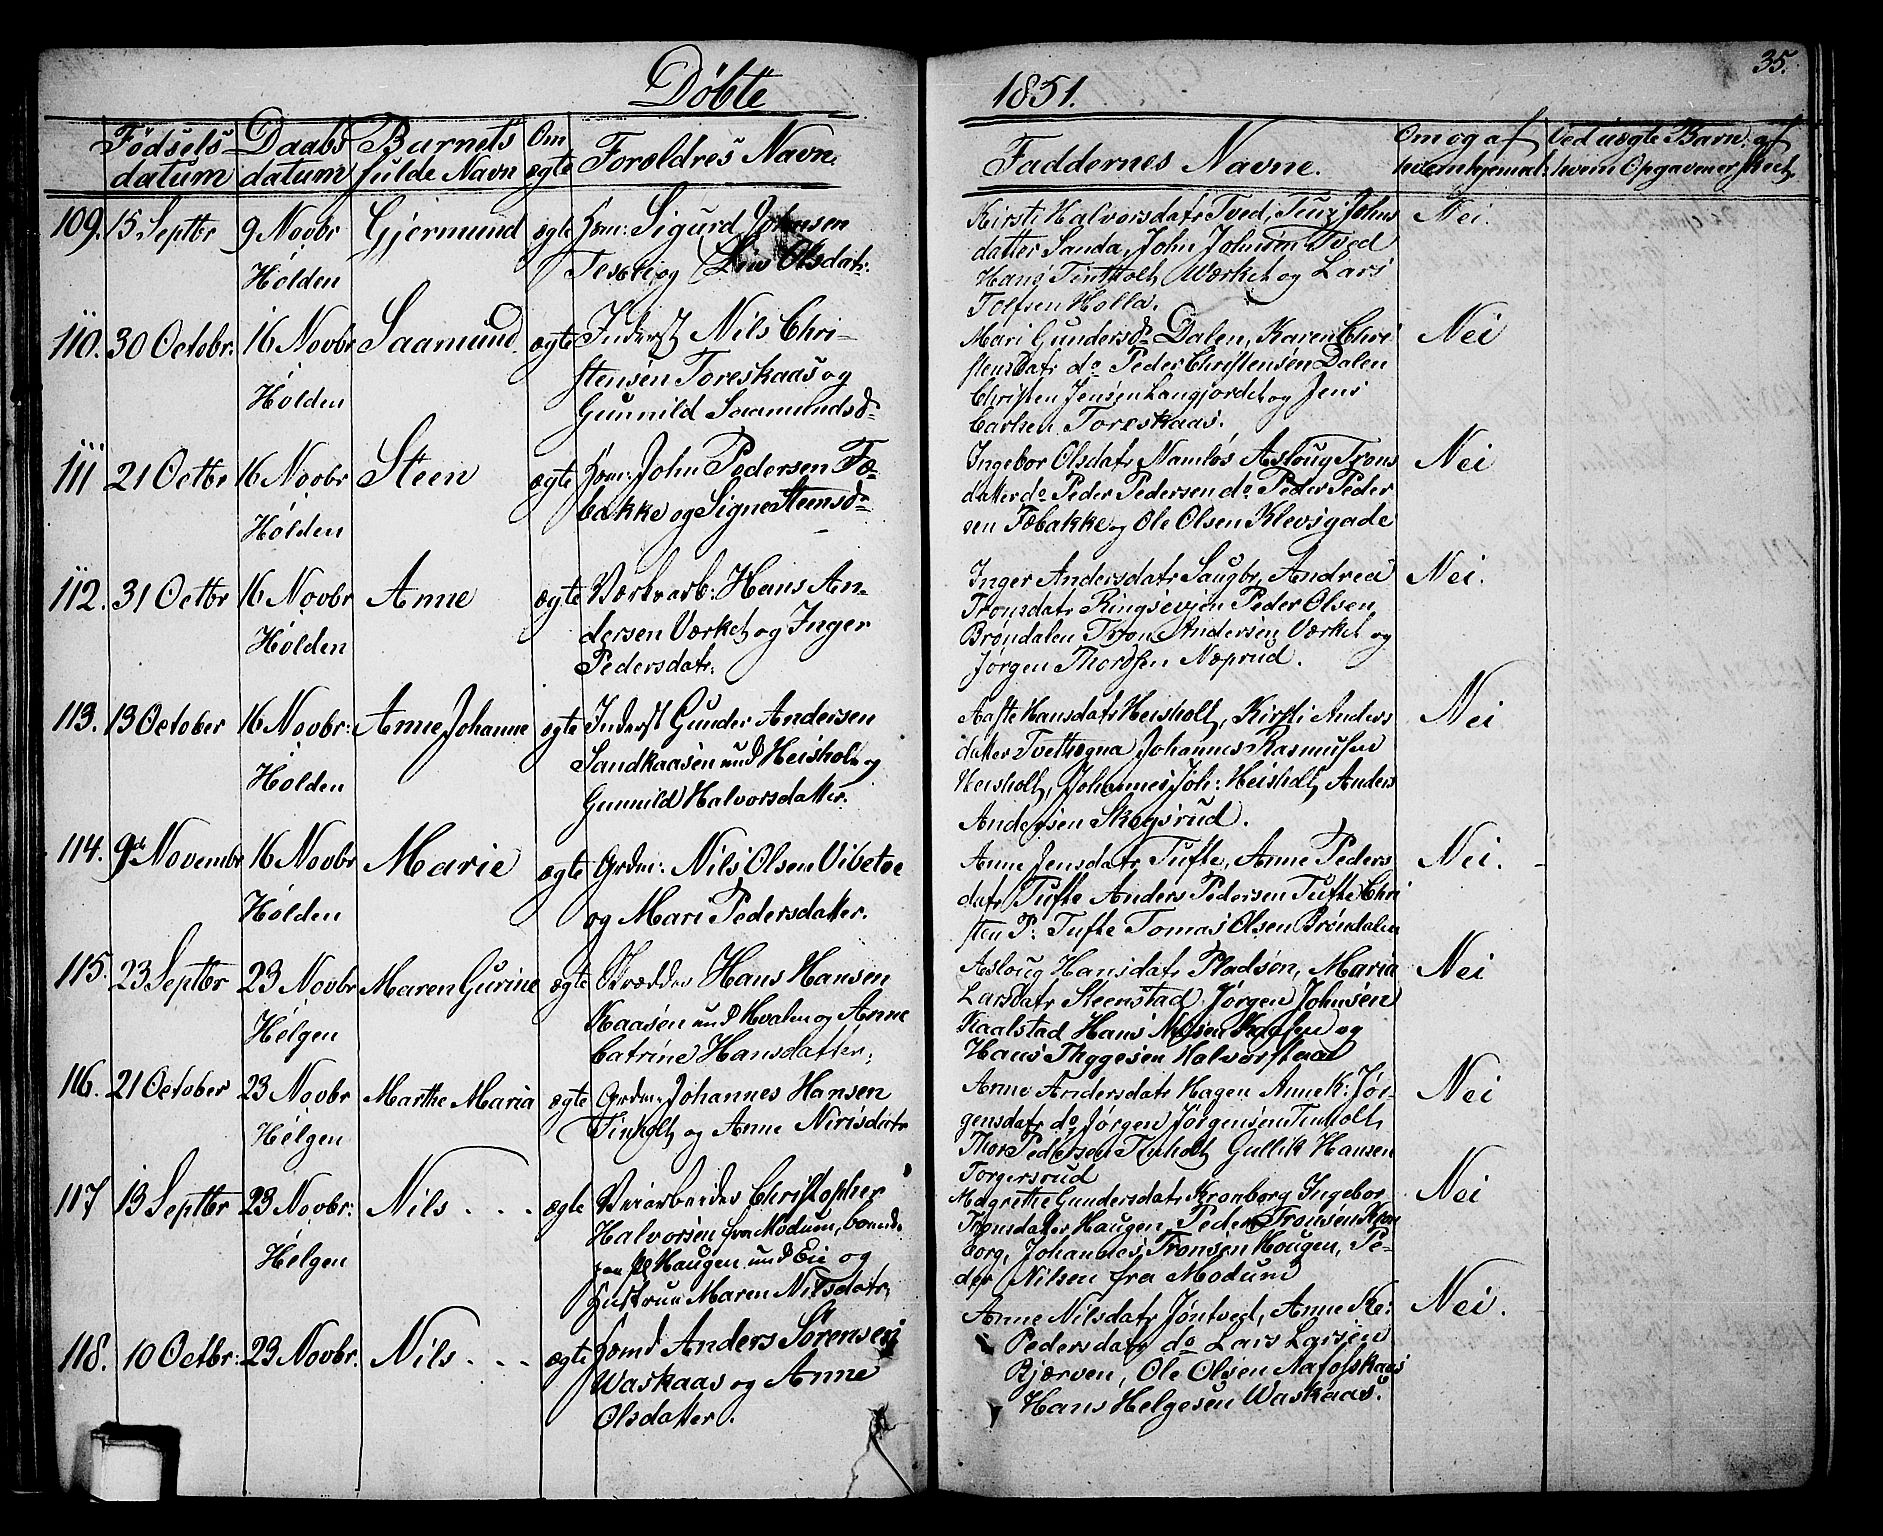 Døbte
1851.
35.
Fødsels datum
Daabs datum
Barnets fulde Navn
Om ægte
Forældres Navn.
Faddernes Navne.
Om og af hvem hjemmd:
Ved uægte Barn: af hvem Opgaven er skeet
109. 15 Septbr 9 Novbr Gjermund ægte Gom: Sigurd Johnsen
Holden Tesbei og Liv Olsdatr:
Kirsti Halvorsdatr Tved, Johns
datter Sanda, John Johnsen Tved
Hans Tintholt, Værket og Lars
Tolfsen Holla.
Nei.
110. 30 Octobr: 16 Novbr Saamund ægte Inderst Nils Chri-
stensen Toreskaas og
Holden Gunnild Saamundsd-
Mari Gundersd- Dalen, Karen Chri
stensdatr do Peder Christensen Dalen
Christen Jensen Langjordet og Jens
Carlsen Toreskaas.
Nei
111 21 Octbr 16 Novbr Steen ægte Gom: John Pedersen Fæ-
Holden bakke og Signe Steensd-
Ingebor Olsdatr Namløs Asloug Trons
datter do Peder Pedersen do Peder Peder
sen Fæbakke og Ole Olsen Klevsgade
Nei
112. 31 Octbr 16 Novbr Anne ægte Værksarb: Hans An-
Holden dersen Værket og Inger
Pedersdatr:
Inger Andersdatr Saugbr, Andrea
Tronsdatr Ringsevjen Peder Olsen,
Brøndalen Tron Andersen Værket og
Jørgen Thordsen Næprud.
Nei.
113. 13 October 16 Novbr: Anne Johanne ægte Inderst Gunder Andersen
Holden Sandkaasen und Heisholt og
Gunnild Halvorsdatter.
Aaste Hansdatr Heisholt, Kirsti Anders
datter Johannes Rasmusen
Heisholt, Johannes Joh: Heisholt, Anders
Andersen Skogsrud.
Nei
114. 9de Novembr 16 Novbr Marie ægte Grdm: Nils Olsen Vibetoe
Holden og Mari Pedersdatter.
Anne Jensdatr Tufte, Anne Peders
datr Tufte Anders Pedersen Tufte Chri
sten P: Tufte Tomas Olsen Brøndalen
Nei.
115. 23 Septbr 23 Novbr Maren Gurine ægte Skrædder Hans Hansen
Helgen Kaasen und Hvalen og Anne
Catrine Hansdatter.
Asloug Hansdatr Pladsen, Maria
Larsdatr Steenstad, Jørgen Johnsen
Kaalstad Hans Nilsen og
Hans Tyggesen
Nei
116. 21 October 23 Novbr Marthe Maria ægte Grdm: Johannes Hansen
Helgen Tinholt og Anne Nirisdatr
Anne Andersdatr Hagen Anne K: Jør-
gensdatr do Jørgen Jørgensen Tinholt,
Thor Pedersen Tinholt Gullik Hansen
Torgersrud
Nei
117 13 Septbr 23 Novbr: Nils . . . ægte Veiarbeider Christopher
Helgen Halvorsen fra Modum, boende
paa Pl Haugen und Eie og
Hustrue Maren Nilsdatr.
Magrethe Gundersdatr Kronborg Ingebor
Tronsdatter Haugen, Peder Tronsen Kron
borg, Johannes Tronsen Hougen, Pe-
der Nilsen fra Modum
Nei
118. 10 Octbr: 23 Novbr. Nils . . . ægte Gomd Anders Sørensen
Waskaas og Anne
Olsdatter.
Anne Nilsdatr Jøntved, Anne Ke:
Pedersdatr do Lars Larsen
Bjærven, Ole Olsen
Hans Helgesen Waskaas.
Nei.